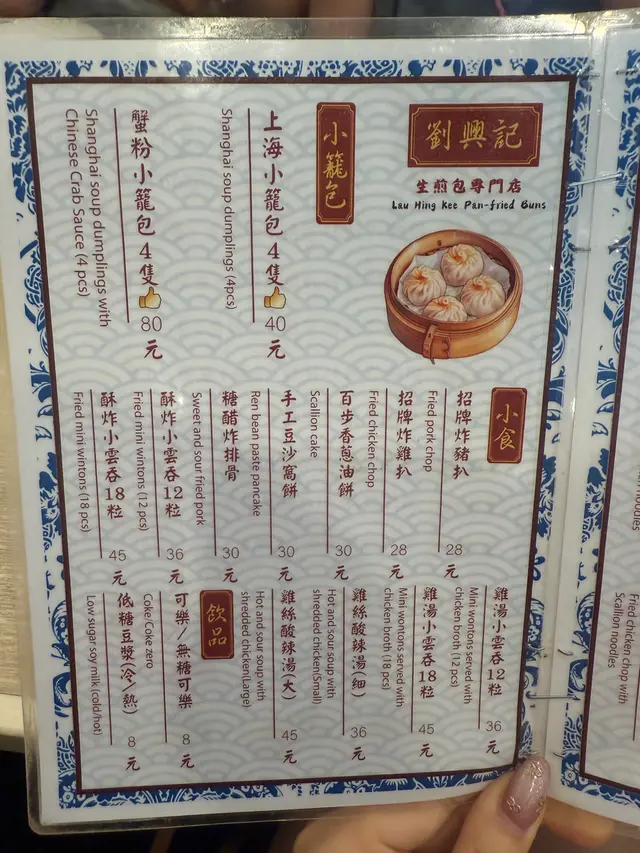 劉興記
生煎包專門店
Lau Hing Kee Pan-fried Buns
小籠包
上海小籠包4隻 40元
Shanghai soup dumplings (4pcs)
蟹粉小籠包4隻 80元
Shanghai soup dumplings with
Chinese Crab Sauce (4 pcs)
小食
招牌炸豬扒 28元
Fried pork chop
招牌炸雞扒 28元
Fried chicken chop
百步香蔥油餅 30元
Scallion cake
手工豆沙窩餅 30元
Ren bean paste pancake
糖醋炸排骨 30元
Sweet and sour fried pork
酥炸小雲吞12粒 36元
Fried mini wintons (12 pcs)
酥炸小雲吞18粒 45元
Fried mini wintons (18 pcs)
雞湯小雲吞12粒 36元
Mini wontons served with
chicken broth (12 pcs)
雞湯小雲吞18粒 45元
Mini wontons served with
chicken broth (18 pcs)
雞絲酸辣湯(細) 36元
Hot and sour soup with
shredded chicken(Small)
雞絲酸辣湯(大) 45元
Hot and sour soup with
shredded chicken(Large)
飲品
可樂/無糖可樂 8元
Coke/Coke zero
低糖豆漿(冷/熱) 8元
Low sugar soy milk (cold/hot)
noodles
Fried chicken chop with
Scallion noodles